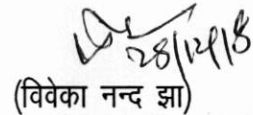 28/12/18
(विवेका नन्द झा)